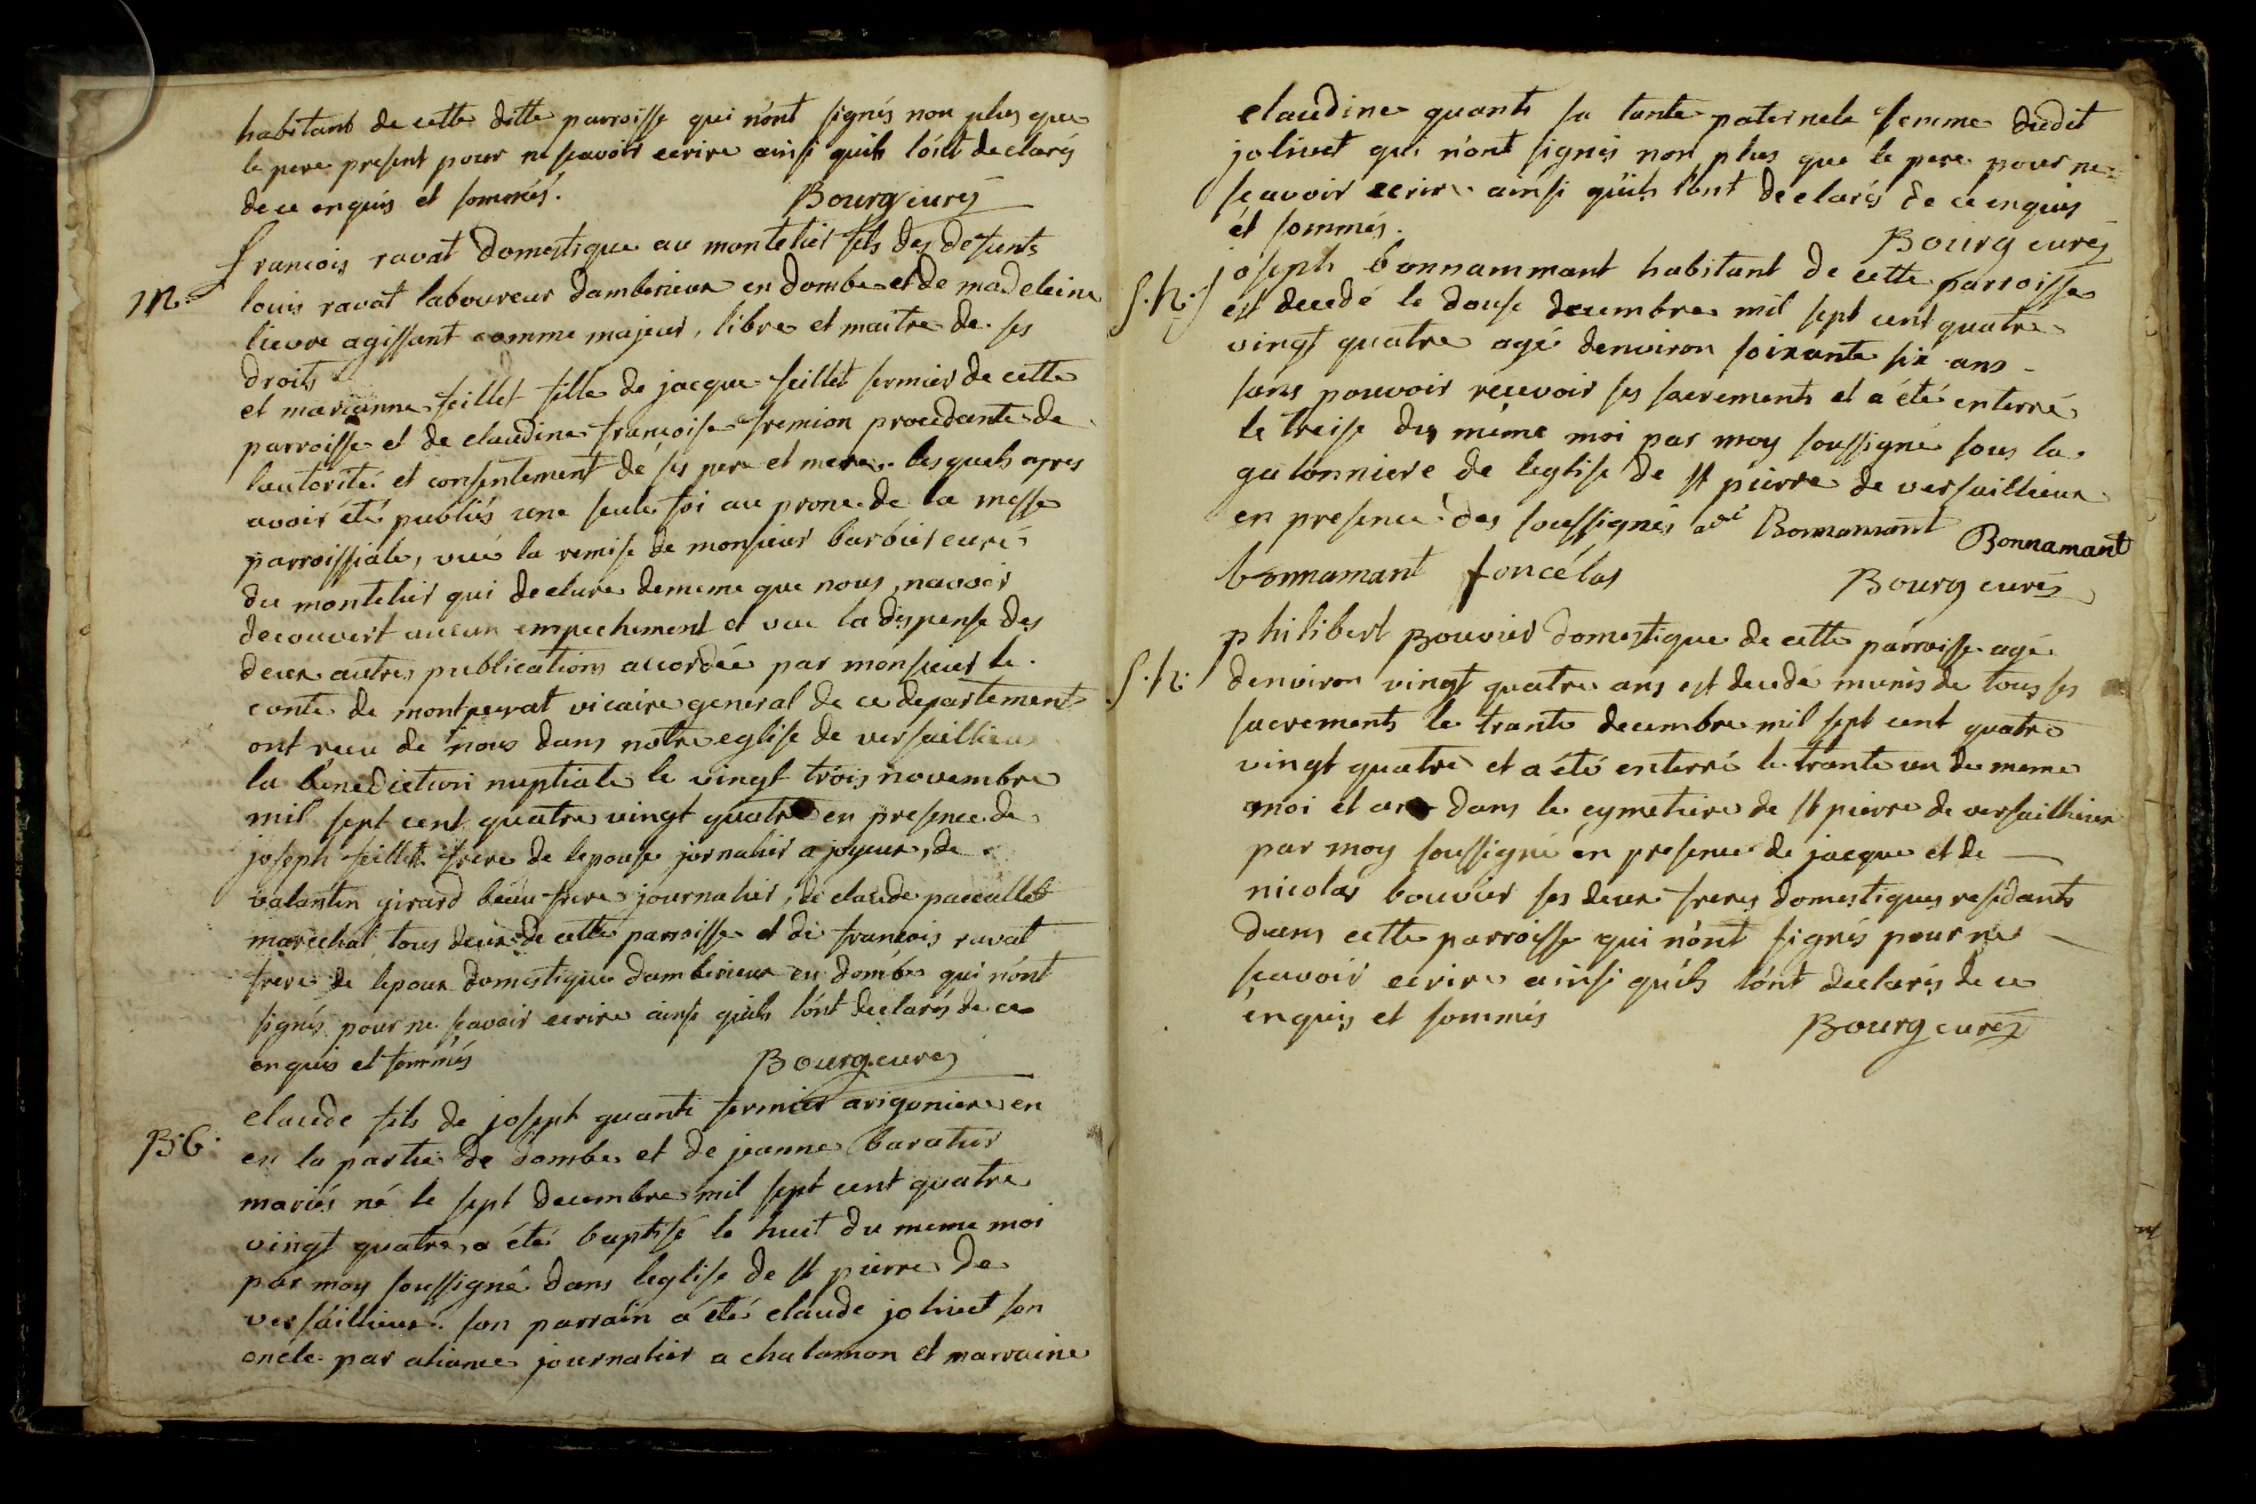 habitant de cette ditte parroisse qui n'ont signés non plus que
le pere present pour ne scavoir ecrire ainsi quils l'ont declarés
de ce enquis et sommés. Bourg curé
M.
francois ravat domestique au montelier fils des defunts
louis ravat laboureur damberieux en dombe et de madeleine
lievre agissant comme majeur, libre et maitre de ses
droits
et marianne feillet fille de jacque feillet fermier de cette
parroisse et de claudine francoise fremion procedante de
lautorité et consentement de ses pere et mere. lesquels apres
avoir été publiés une seule foi au prone de la messe
parroissiale, vüe la remise de monsieur barbier curé
du montelier qui declare dememe que nous navoir
decouvert aucun empechement et vue la dispense des
deux autres publications accordée par monsieur le
conte de montperat vicaire general de ce departement
ont recu de nous dans notre eglise de versaillieux
la benediction nuptiale le vingt trois novembre
mil sept cent quatre vingt quatre en presence de
joseph feillet frere de lepouse jornalier a joyeux, de
valantin girard beau frere journalier, de claude paccallet
marechal tous deux de cette parroisse et de francois ravat
frere de lepoux domestique damberieux en dombe qui n'ont
signés pour ne scavoir ecrire ainsi quils l'ont declarés de ce
enquis et sommés Bourg curé
B. 6.
claude fils de joseph quanti fermier a rigoniere en
en la partie de dombe et de jeanne baratier
mariés né le sept decembre mil sept cent quatre
vingt quatre, a été baptisé le huit du meme moi
par moy soussigné dans leglise de st pierre de
versaillieux. son parrain a été claude jolivet son
oncle par aliance journalier a chalamon et marraine
claudine quanti sa tante paternele femme dudit
jolivet qui n'ont signés non plus que le pere pour ne
scavoir ecrire ainsi quils l'ont declarés de ce enquis
et sommés. Bourg curé
S. h.
joseph bonnammant habitant de cette parroisse
est decedé le douse decembre mil sept cent quatre
vingt quatre agé denviron soixante six ans
sans pouvoir recevoir ses sacrements et a été enterré
le treise du même moi par moy soussigné sous la
galonniere de leglise de st pierre de versaillieux
en presence des soussignés Bonnamant Bonnamant
bonnamant foncélas Bourg curé
S. h.
philibert Bouvier domestique de cette parroisse agé
denviron vingt quatre ans est decedé munis de tous ses
sacrements le trante decembre mil sept cent quatre
vingt quatre et a été enterré le trante un du meme
moi et an dans le cymetiere de st pierre de versaillieux
par moy soussigné en presence de jacque et de
nicolas bouvier ses deux freres domestiques residants
dans cette parroisse qui n'ont signés pour ne
scavoir ecrire ainsi quils l'ont declarés de ce
enquis et sommés Bourg curé